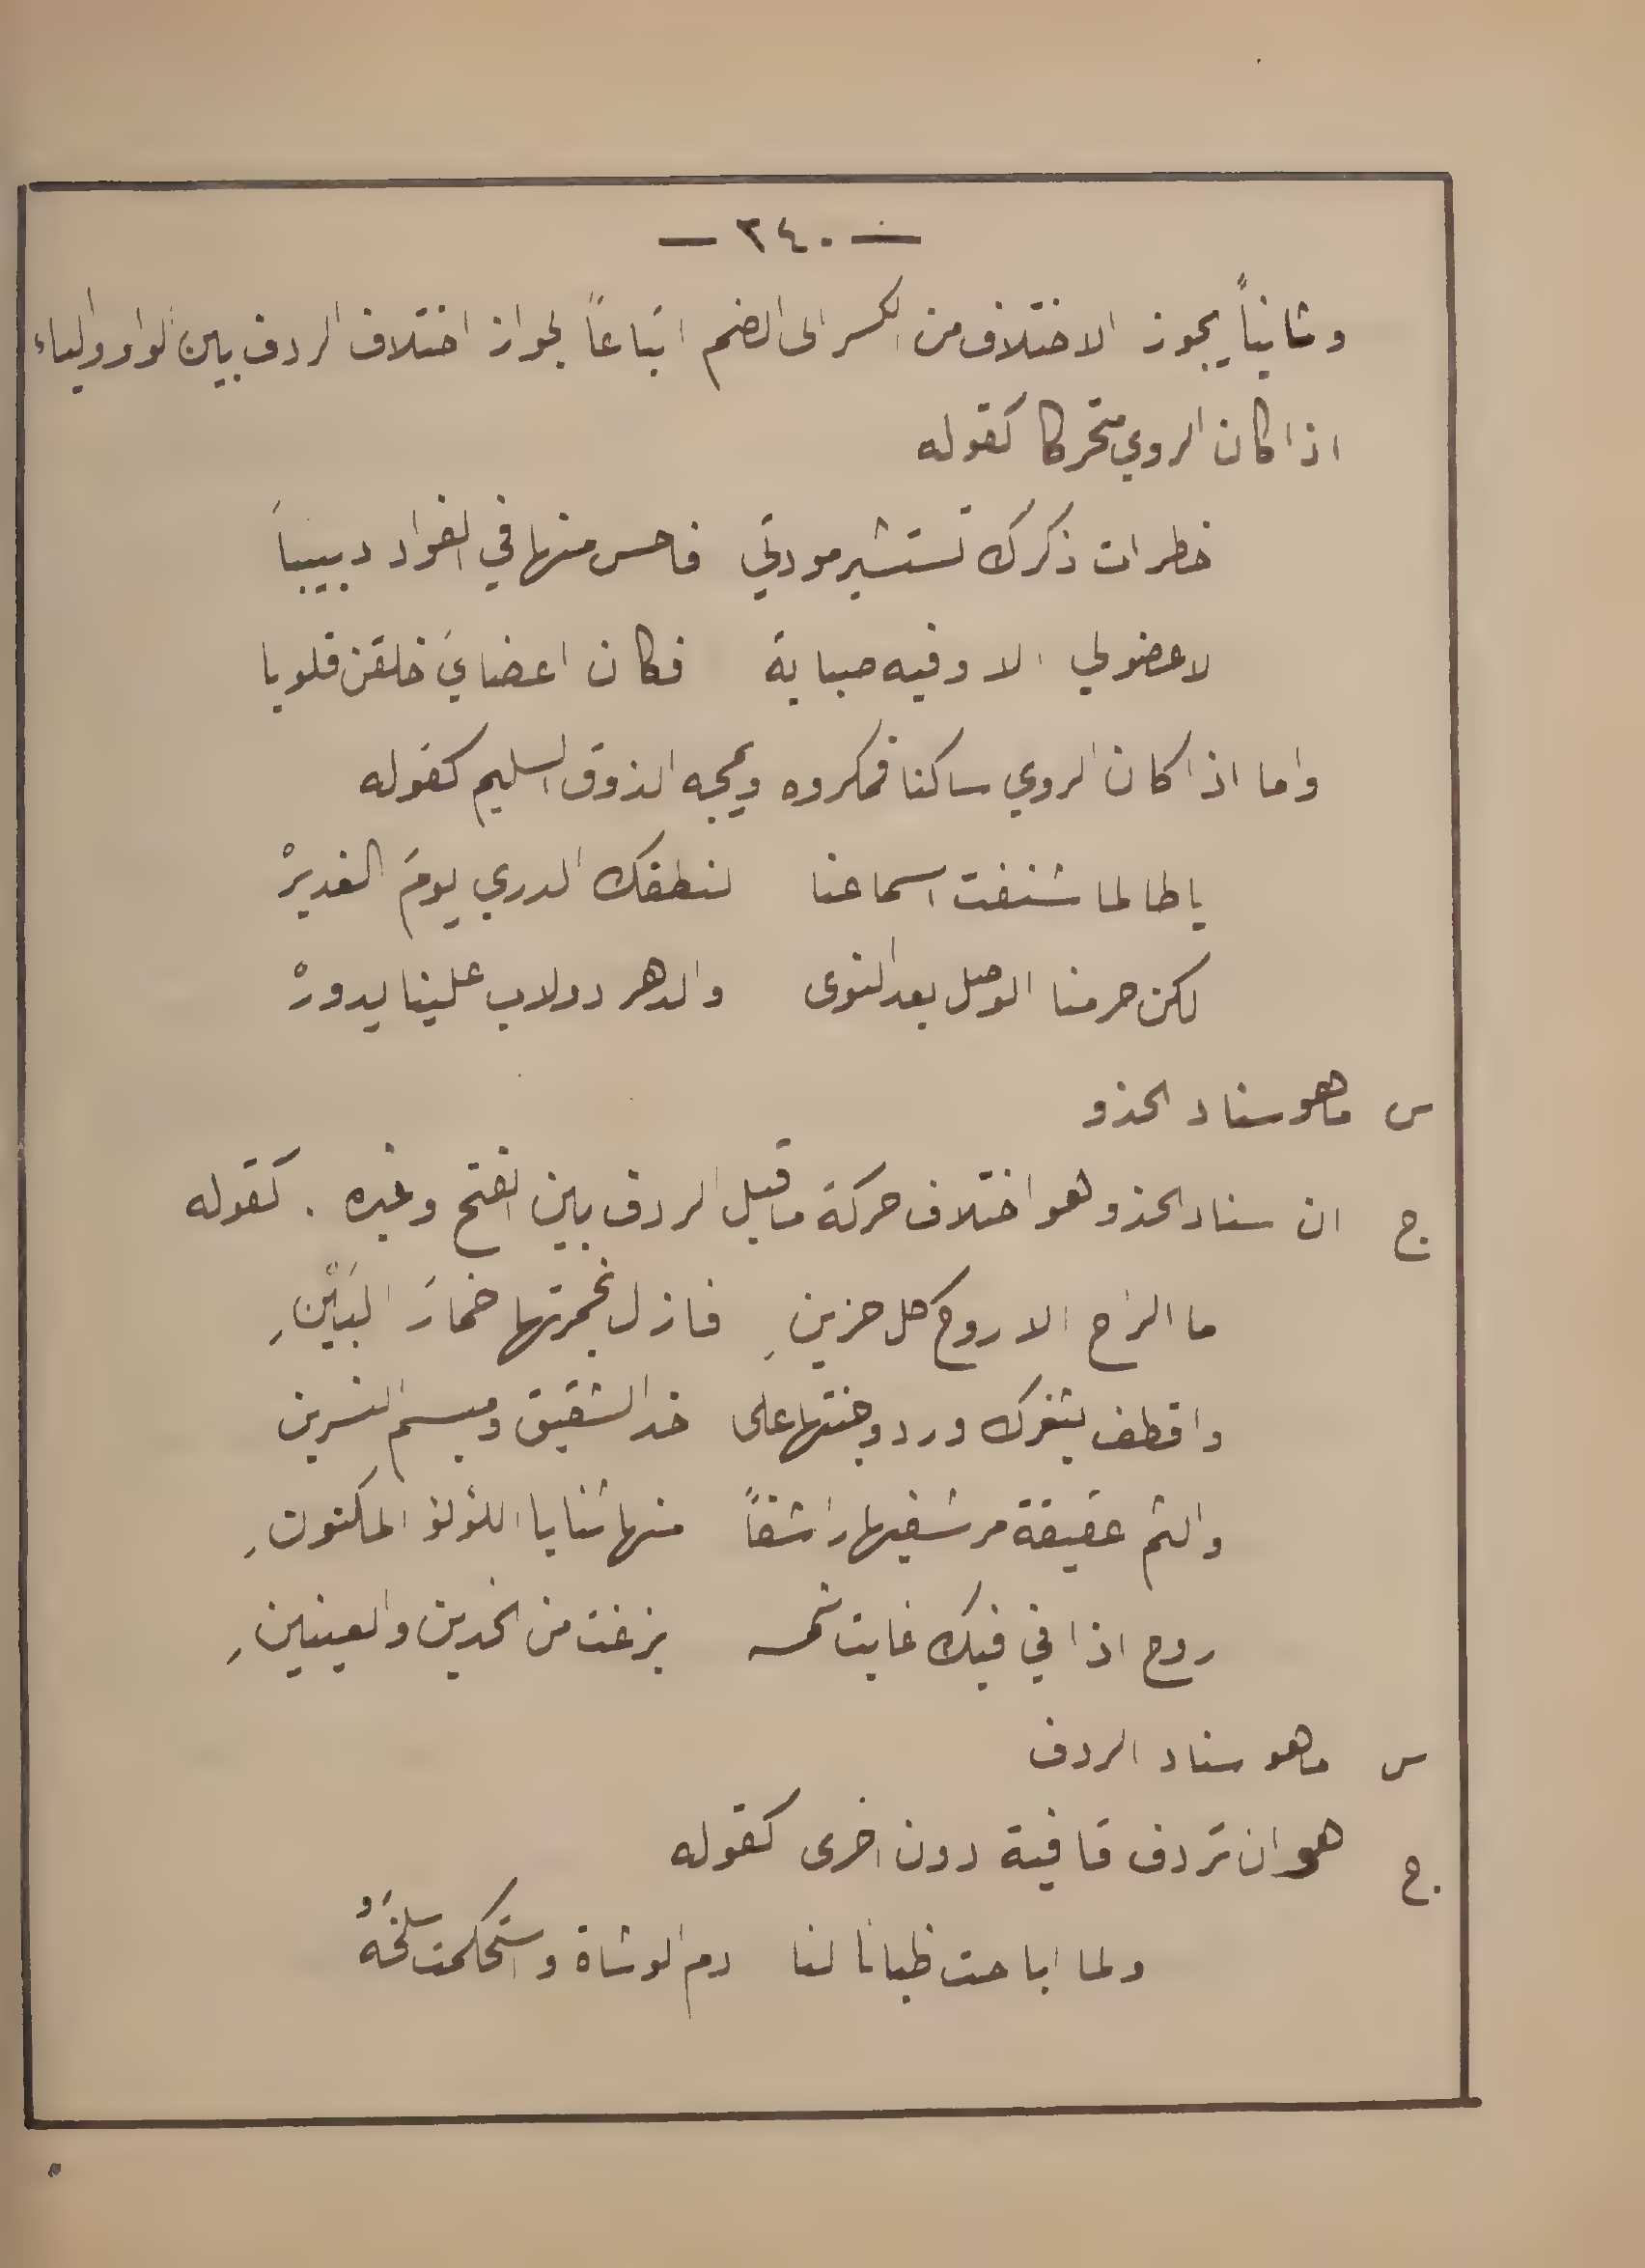 — ٢٤٠ —
وثانياً يجوز الاختلاف من الكسر الى الضم اتباعاً لجواز اختلاف الردف بين الواو والياء
اذا كان الروي متحركا كقوله
خطرات ذكرك تستثير مودتي فاحس منها في الفواد دبيباً
لا عضو لي الا وفيه صبابة فكان اعضايَ خلقن قلوبا
واما اذا كان الروي ساكنا فمكروه ويمجه الذوق السليم كقوله
يا طالما شنفت اسماعنا لنطقك الدري يومَ الغديرْ
لكن حرمنا الوصل بعد النوى والدهر دولاب علينا يدورْ
س ما هو سناد الحذو
ج ان سناد الحذو هو اختلاف حركة ما قبل الردف بين الفتح وغيره . كقوله
ما الراح الا روح كل حزينِ فازل بخمرتها خمارَ البَيْنِ
واقطف بثغرك ورد وجنتها على خد الشقيق ومبسم النسرين
والثم عقيقة مرشفيها راشفاً منها ثنايا اللؤلؤ المكنونِ
روح اذا في فيك غابت شمسه بزغت من الخدين والعينينِ
س ما هو سناد الردف
ج هو ان تردف قافية دون اخرى كقوله
ولما اباحت ظبانا لنا دم الوشاة واستحكمت